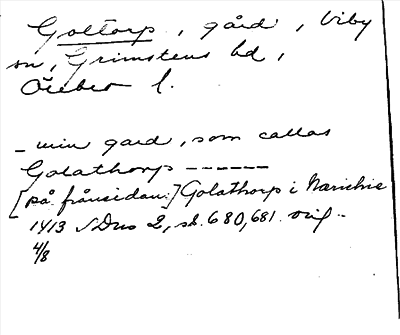 Goltorp, gård, Viby
sn, Grimstens hd,
Örebro l.
– min gard, som callas
Golathorp ------
[på frånsidan:] Golathorp i Närichie
1413 SDns 2, s. 680, 681. orig.
4/8